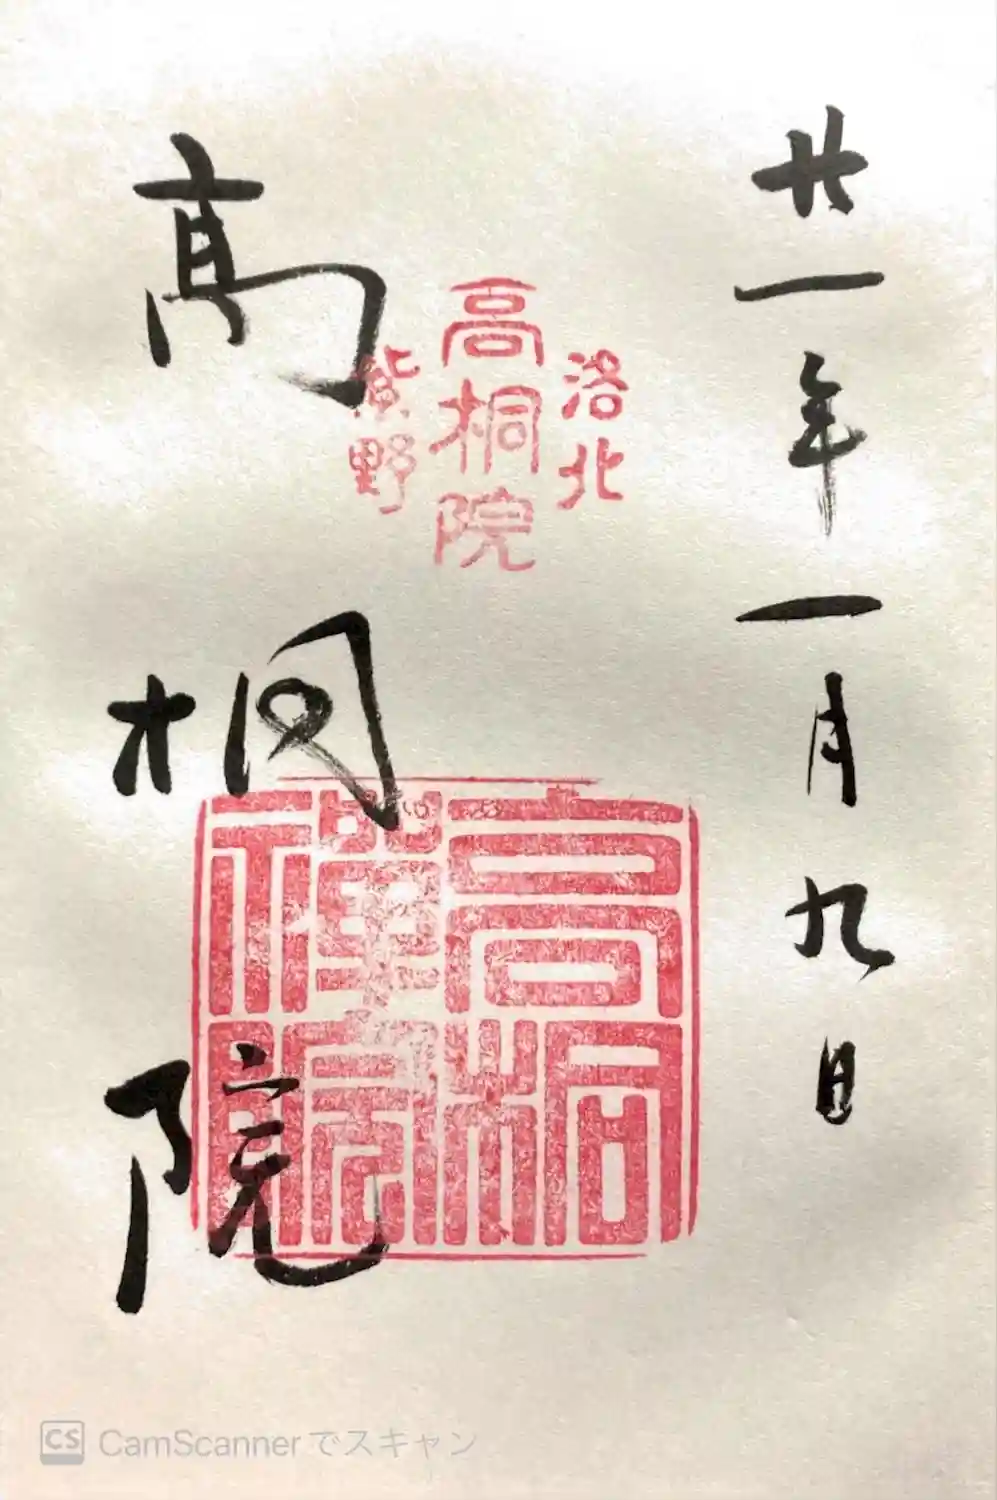 廿一年一月九日
洛北
高桐院
紫野
高桐
禅院
高桐院
CS CamScannerでスキャン